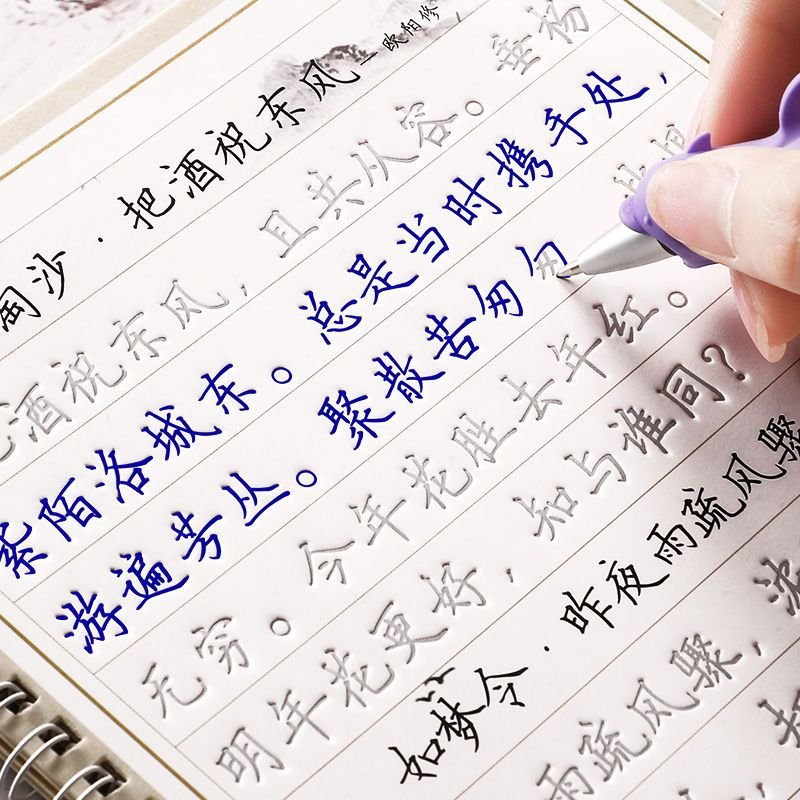 淘沙·把酒祝东风 —欧阳修
酒祝东风，且共从容。垂杨
紫陌洛城东。总是当时携手处，
游遍芳丛。聚散苦匆匆 此恨
无穷。今年花胜去年红。
明年花更好，知与谁同？
如梦令·昨夜雨疏风骤
雨疏风骤，浓